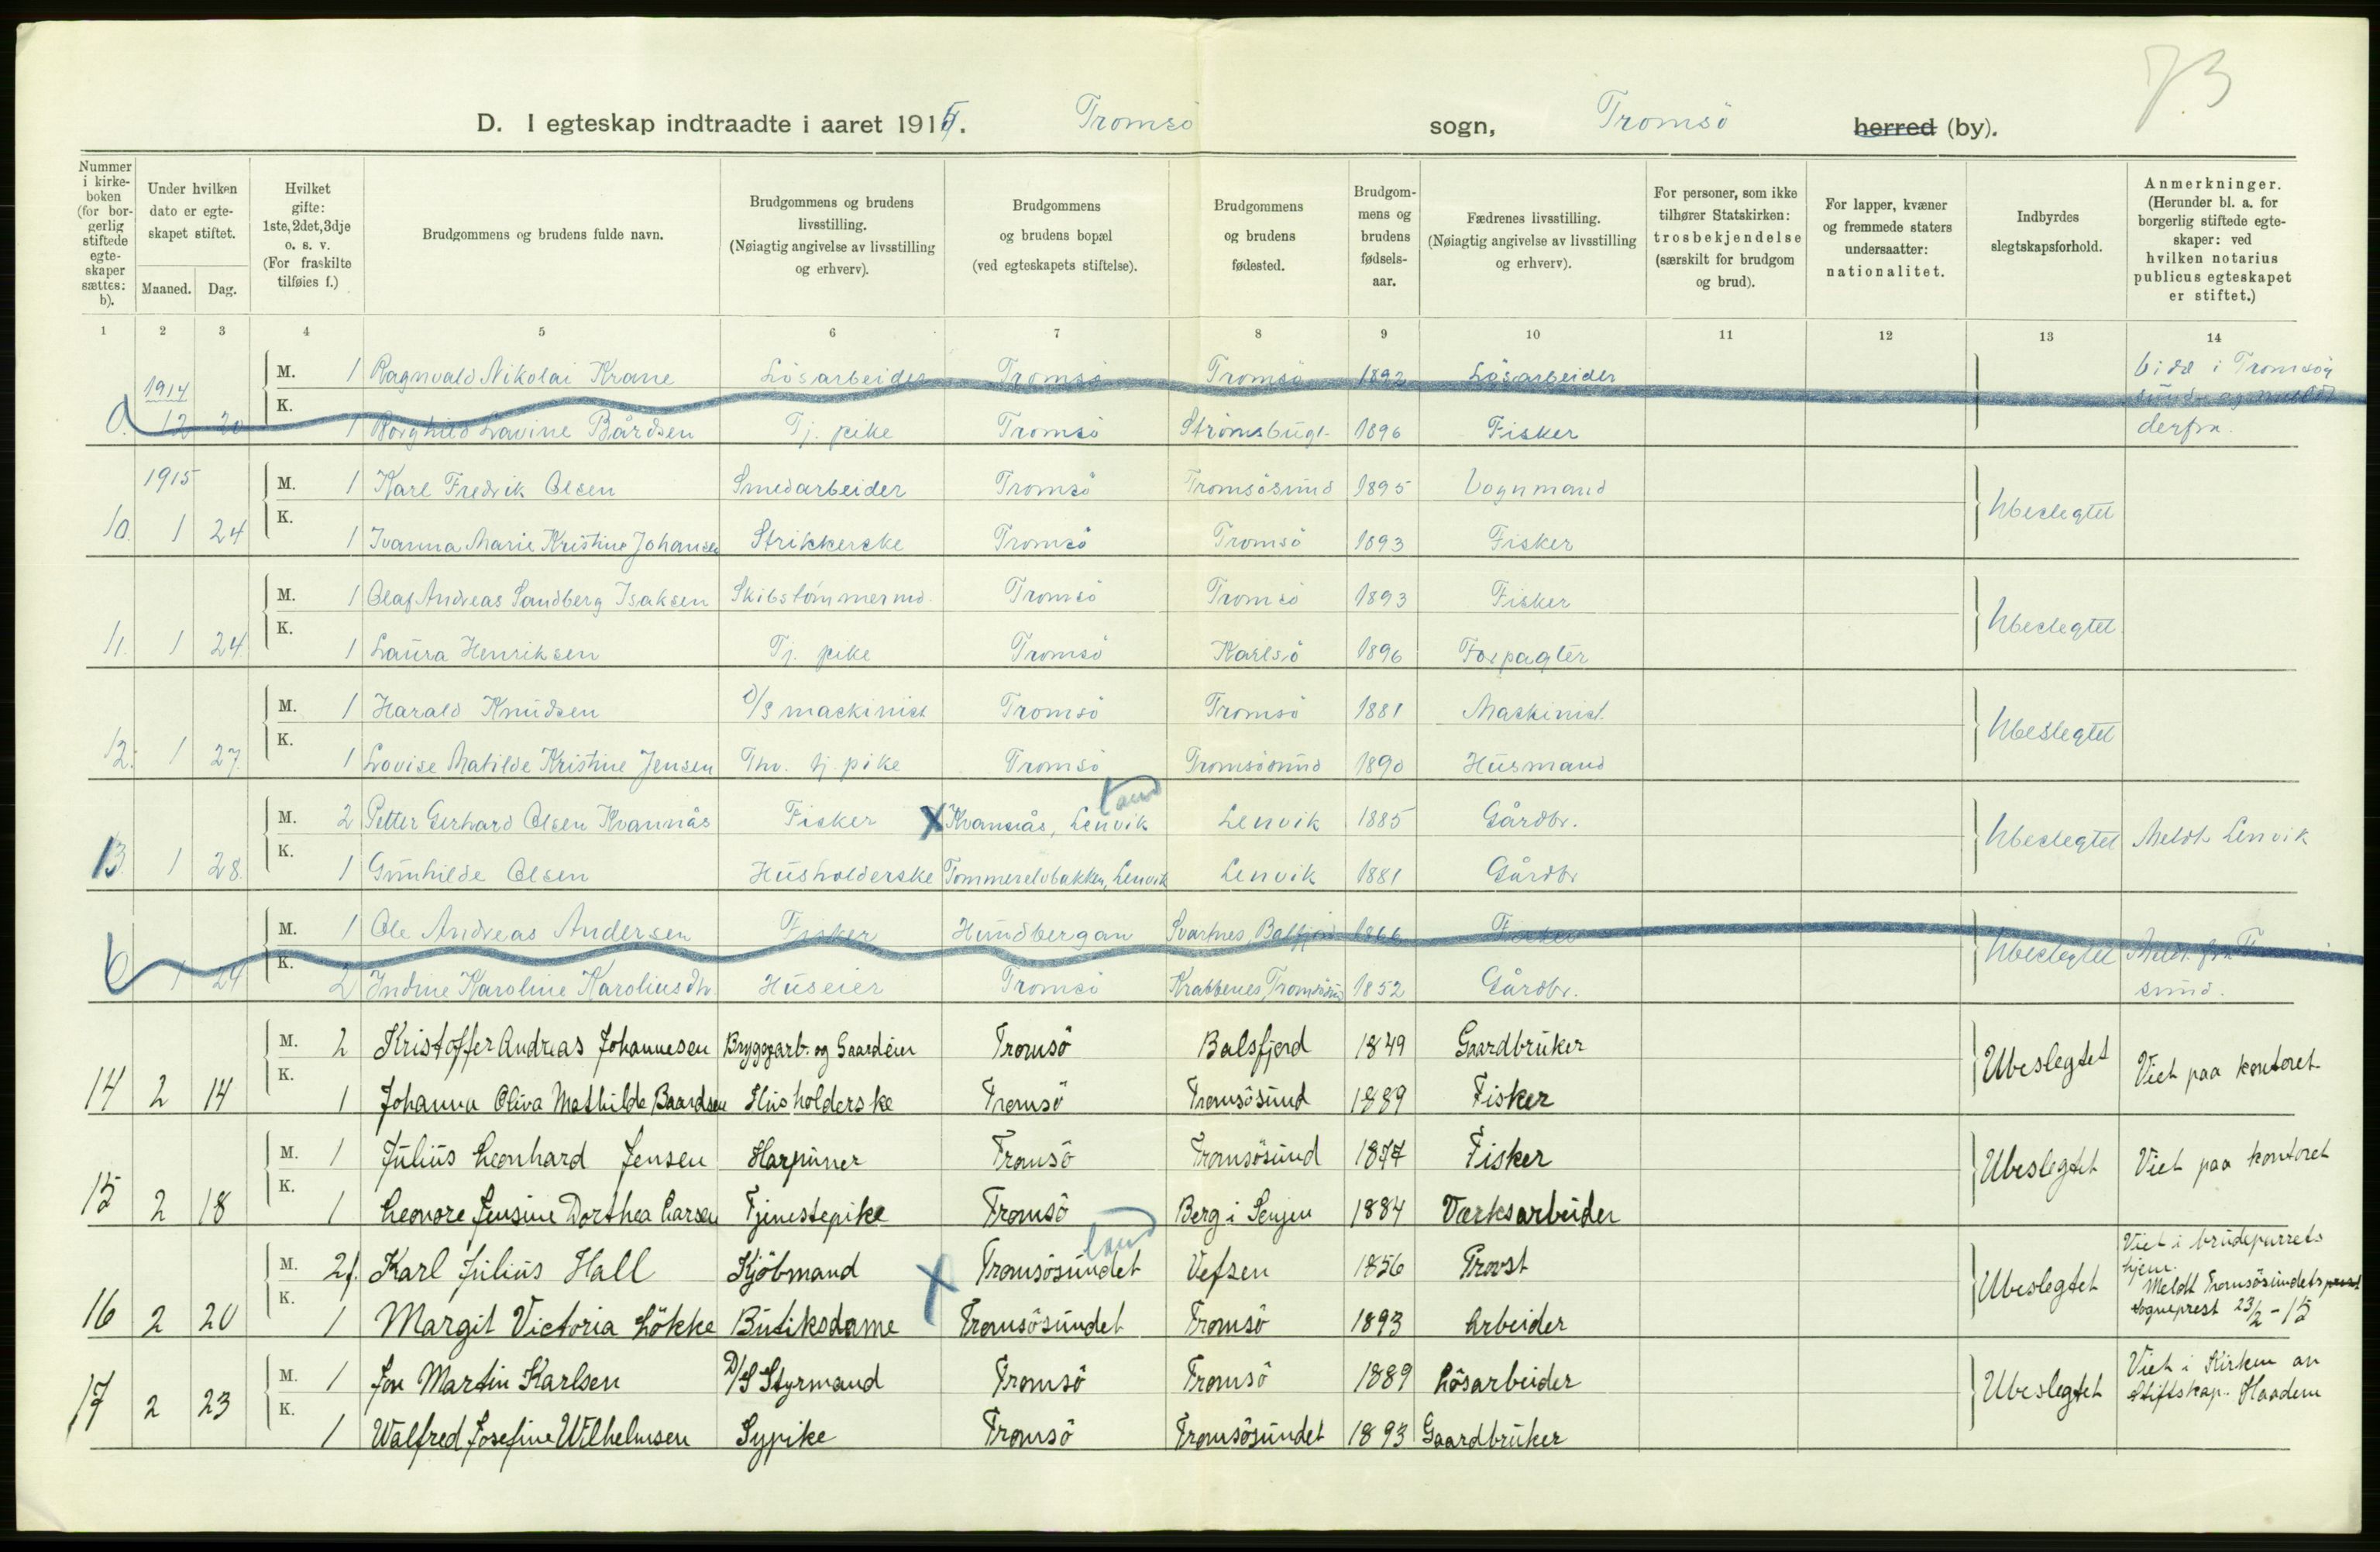 73
D. I egteskap indtraadte i aaret 1915. Tromsö sogn, Tromsö herred (by).
Nummer i kirke-boken (for bor-gerlig stiftede egte-skaper sættes: b).
Under hvilken dato er egte-skapet stiftet.
Maaned. Dag.
Hvilket gifte: 1ste, 2det, 3dje o. s. v. (For fraskilte tilføies f.)
Brudgommens og brudens fulde navn.
Brudgommens og brudens livsstilling. (Nøiagtig angivelse av livsstilling og erhverv).
Brudgommens og brudens bopæl (ved egteskapets stiftelse).
Brudgommens og brudens fødested.
Brudgom-mens og brudens fødsels-aar.
Fædrenes livsstilling. (Nøiagtig angivelse av livsstilling og erhverv).
For personer, som ikke tilhører Statskirken: trosbekjendelse (særskilt for brudgom og brud).
For lapper, kvæner og fremmede staters undersaatter: nationalitet.
Indbyrdes slegtskapsforhold.
Anmerkninger. (Herunder bl. a. for borgerlig stiftede egte-skaper: ved hvilken notarius publicus egteskapet er stiftet.)
1 2 3 4 5 6 7 8 9 10 11 12 13 14
M. 1 Ragnvald Nikolai Krane Lösarbeider Tromsö Tromsö 1892 Lösarbeider
1914
a. 12 20 K. 1 Borghild Lavine Bårdsen Tj. pike Tromsö Strömsbugt 1896 Fisker
i Tromsöy
sund og
derfra.
1915 M. 1 Karl Fredrik Olsen Smedarbeider Tromsö Tromsösund 1895 Vognmand
10. 1 24 K. 1 Ivanna Marie Kristine Johansen Strikkerske Tromsö Tromsö 1893 Fisker Ubeslegtet
M. 1 Olaf Andreas Sandberg Isaksen Skibstömmermd. Tromsö Tromsö 1893 Fisker
11. 1 24. K. 1 Laura Henriksen Tj. pike Tromsö Karlsö 1896 Forpagter Ubeslegtet
M. 1 Harald Knudsen D/S maskinist Tromsö Tromsö 1881 Maskinist.
12. 1 27. K. 1 Lovise Matilde Kristine Jensen Thv. tj. pike Tromsö Tromsösund 1890 Husmand Ubeslegtet
land
M. 2 Petter Gerhard Olsen Kvannås Fisker X Kvannås, Lenvik Lenvik 1885 Gårdbr.
13. 1 28. K. 1 Gunhilde Olsen Husholderske Tömmerelvbakken, Lenvik Lenvik 1881 Gårdbr Ubeslegtet Meldt Lenvik
M. 1 Ole Andreas Andersen Fisker Hundbergan Svartnes, Balsfjord 1866 Fisker
b 1 29 K. 2 Indine Karoline Karoliusdtr. Huseier Tromsö Krabbenes, Tromsösund 1852 Gårdbr. Ubeslegtet Meldt fra Tromsö
sund.
M. 2 Kristoffer Andreas Johannesen Bryggearb. og Gaardeier Tromsö Balsfjord 1849 Gaardbruker
14 2 14 K. 1 Johanna Oliva Mathilde Baardsen Husholderske Tromsö Tromsösund 1889 Fisker Ubeslegtet Viet paa kontoret
M. 1 Julius Leonhard Jensen Harpuner Tromsö Tromsösund 1877 Fisker
15 2 18 K. 1 Leonore Jensine Dorthea Larsen Tjenestepike Tromsö Berg i Senjen 1884 Værksarbeider Ubeslegtet Viet paa kontoret
land
M. 2f. Karl Julius Hall Kjöbmand X Tromsösundet Vefsen 1856 Provst
16 2 20 K. 1 Margit Victoria Lökke Butiksdame Tromsösundet Tromsö 1893 Arbeider Ubeslegtet
Viet i brudeparrets
hjem.
Meldt Tromsösundets
sogneprest 23/2 - 15
M. 1 Jon Martin Karlsen D/S Styrmand Tromsö Tromsö 1889 Lösarbeider
17 2 23 K. 1 Walfred Josefine Wilhelmsen Sypike Tromsö Tromsösundet 1893 Gaardbruker Ubeslegtet
Viet i Kirken av
Stiftskap. Haadem